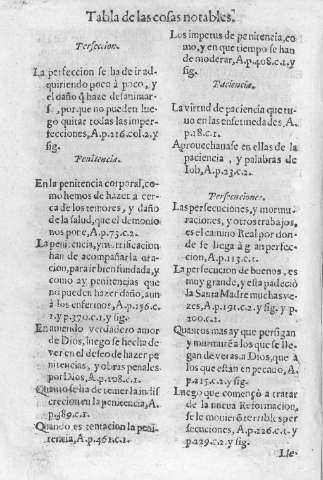 Tabla de las cosas notables.
Perfeccion.
La perfeccion se ha de ir ad-
quiriendo poco à poco, y
el daño q̃ haze desanimar-
se, porque no pueden lue-
go quitar todas las imper-
fecciones, A. p. 216. col. 2. y
sig.
Penitencia.
En la penitencia corporal, co-
mo hemos de hazer à cer-
ca de los temores, y daño
de la salud, que el demonio
nos pone, A. p. 73. c. 2.
La penitencia, y mortificacion
han de acompañar la ora-
cion, para ir bien fundada, y
como ay penitencias que
no pueden hazer daño, aun
à los enfermos, A. p. 256. c.
1. y p. 370. c. 1. y sig.
En auiendo verdadero amor
de Dios, luego se hecha de
ver en el deseo de hazer pe
nitencias, y obras penales
por Dios, A. p. 208. c. 1.
Quanto se ha de temer la indis
crecion en la penitencia, A.
p. 389. c. 1.
Quando es tentacion la peni
tencia, A. p. 461. c. 1.
Los impetus de penitencia, co
mo, y en que tiempo se han
de moderar, A. p. 408. c. 1. y
sig.
Paciencia.
La virtud de paciencia que tu-
uo en las enfermedades, A.
p. 18. c. 1.
Aprouechauase en ellas de la
paciencia, y palabras de
Iob, A. p. 23. c. 2.
Persecuciones.
Las persecuciones, y mormu-
raciones, y otros trabajos,
es el camino Real por don-
de se llega à gran perfec-
cion, A. p. 113. c. 1.
La persecucion de buenos, es
muy grande, y esta padeciò
la Santa Madre muchas ve-
zes, A. p. 191. c. 2. y sig. y p.
200. c. 2.
Quantos mas ay que persigan
y murmuren à los que se lle-
gan de veras a Dios, que à
los que estan en pecado, A.
p. 215. c. 2. y sig.
Luego que començò a tratar
de la nueua Reformacion,
se le mouierõ terribles per
secuciones, A. p. 226. c. 1. y
p. 239. c. 2. y sig.